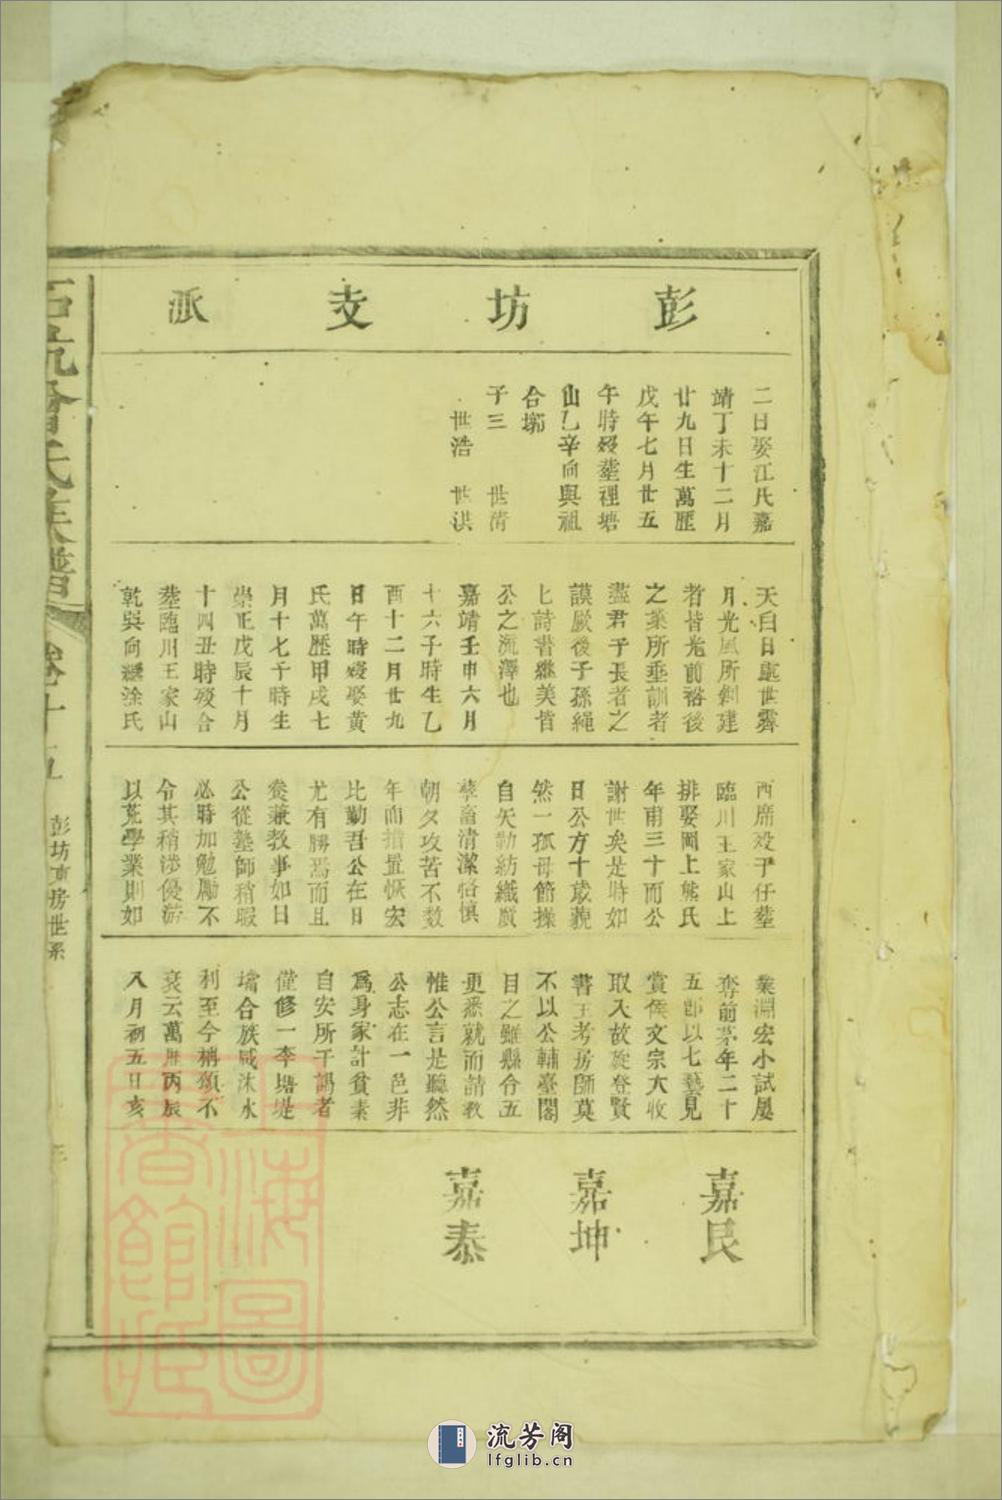 彭坊支派
二日娶江氏嘉
靖丁未十二月
廿九日生萬歷
戊午七月廿五
午時歿塟裡塘
山乙辛向與祖
合塚
子三 世清
世浩 世洪
天白日處世霽
月光風所創建
者皆光前裕後
之業所垂訓者
盡君子長者之
謨厥後子孫繩
匕詩書繼美皆
公之流澤也
嘉靖壬申六月
十六子時生乙
酉十二月廿九
日午時歿娶黃
氏萬歷甲戌七
月十七午時生
崇正戊辰十月
十四丑時歿合
塟臨川王家山
乾巽向繼涂氏
西席歿于仔塟
臨川王家山上
排娶岡上熊氏
年甫三十而公
謝世矣是時如
日公方十歲藐
然一孤母節操
自矢勤紡織廣
孳畜清潔恪慎
朝夕攻苦不数
年而措置恢宏
比勤吾公在日
尤有勝焉而且
養兼教事如日
公從塾師稍暇
必時加勉勵不
令其稍涉優游
以荒學業則如
業淵宏小試屢
奪前茅年二十
五郎以七藝見
賞侯文宗大收
取入故旋登賢
書王考房師莫
不以公輔臺閣
目之雖縣令五
更悉就而請教
惟公言是聽然
公志在一邑非
爲身家計貧素
自安所干謁者
僅修一李塘堤
壩合族咸沐水
利至今稱頌不
衰云萬歷丙辰
八月初五日亥
嘉民
嘉坤
嘉泰
石坑曾氏族譜
卷十五
彭坊東房世系
上海圖書館藏
流芳阁
lfglib.cn